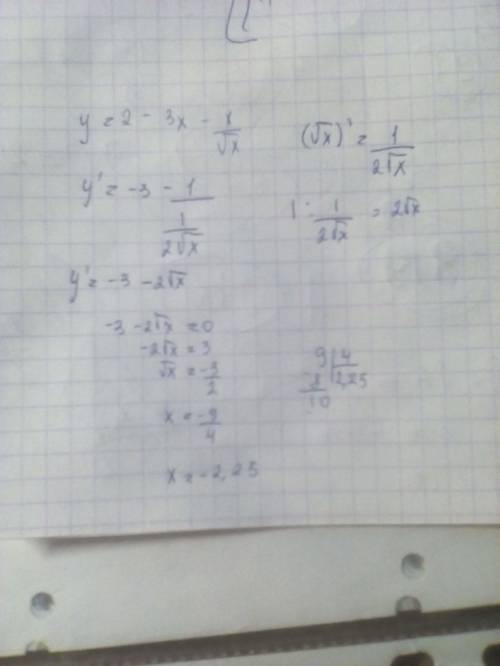 y = 2 - 3x - x/√x
(√x)' = 1/(2√x)
y' = -3 - 1/(1/(2√x))
1 : 1/(2√x) = 2√x
y' = -3 - 2√x
-3 - 2√x = 0
-2√x = 3
√x = -3/2
x = -9/4
x = -2,25
9 | 4
8 | 2,25
10